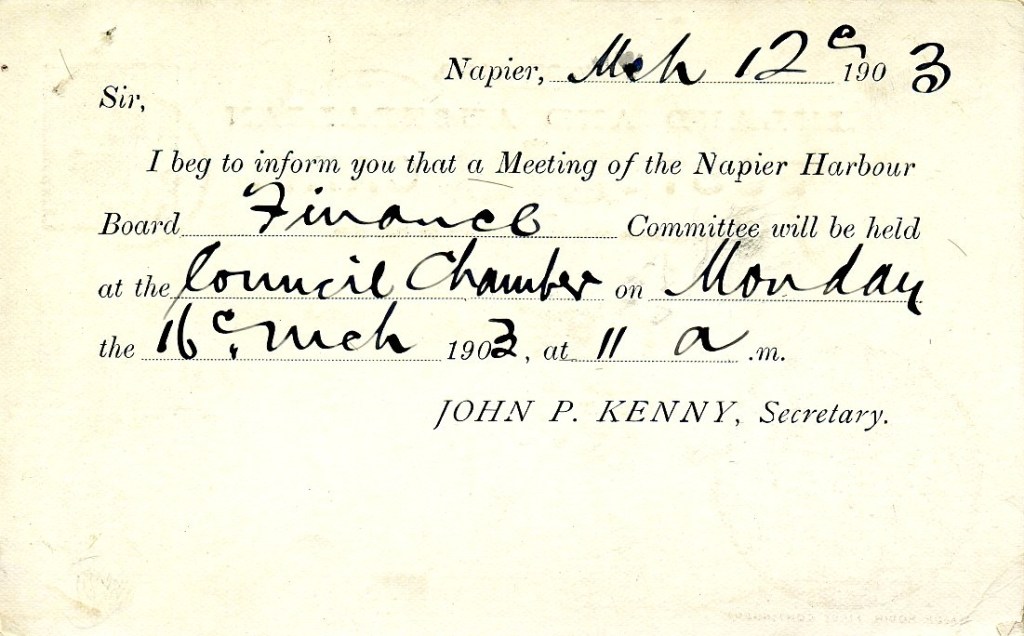 Napier, Mch 12 1903
Sir,
I beg to inform you that a Meeting of the Napier Harbour
Board Finance Committee will be held
at the Council Chamber on Monday
the 16 Mch 1903, at 11 a .m.
JOHN P. KENNY, Secretary.